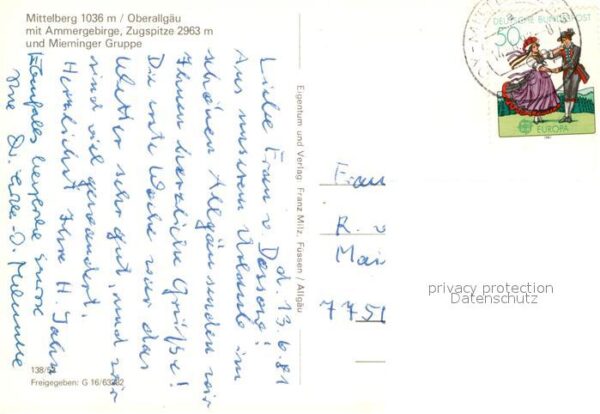 Mittelberg 1036 m / Oberallgäu
mit Ammergebirge, Zugspitze 2963 m
und Mieminger Gruppe
d. 13.6.81
Liebe Frau v.
Aus unserem Urlaub im
schönen Allgäu senden wir
Ihnen herzliche Grüße!
Die erste Woche war das
Wetter sehr gut, und wir
sind viel gewandert.
Herzlichst Ihre H. Jahn
Ebenfalls herzliche Grüße
Ihre
Eigentum und Verlag Franz Milz, Füssen / Allgäu
138/
Freigegeben: G 16/63
DEUTSCHE BUNDESPOST
50
EUROPA
1981
Frau
R. v
Mai
775
privacy protection
Datenschutz